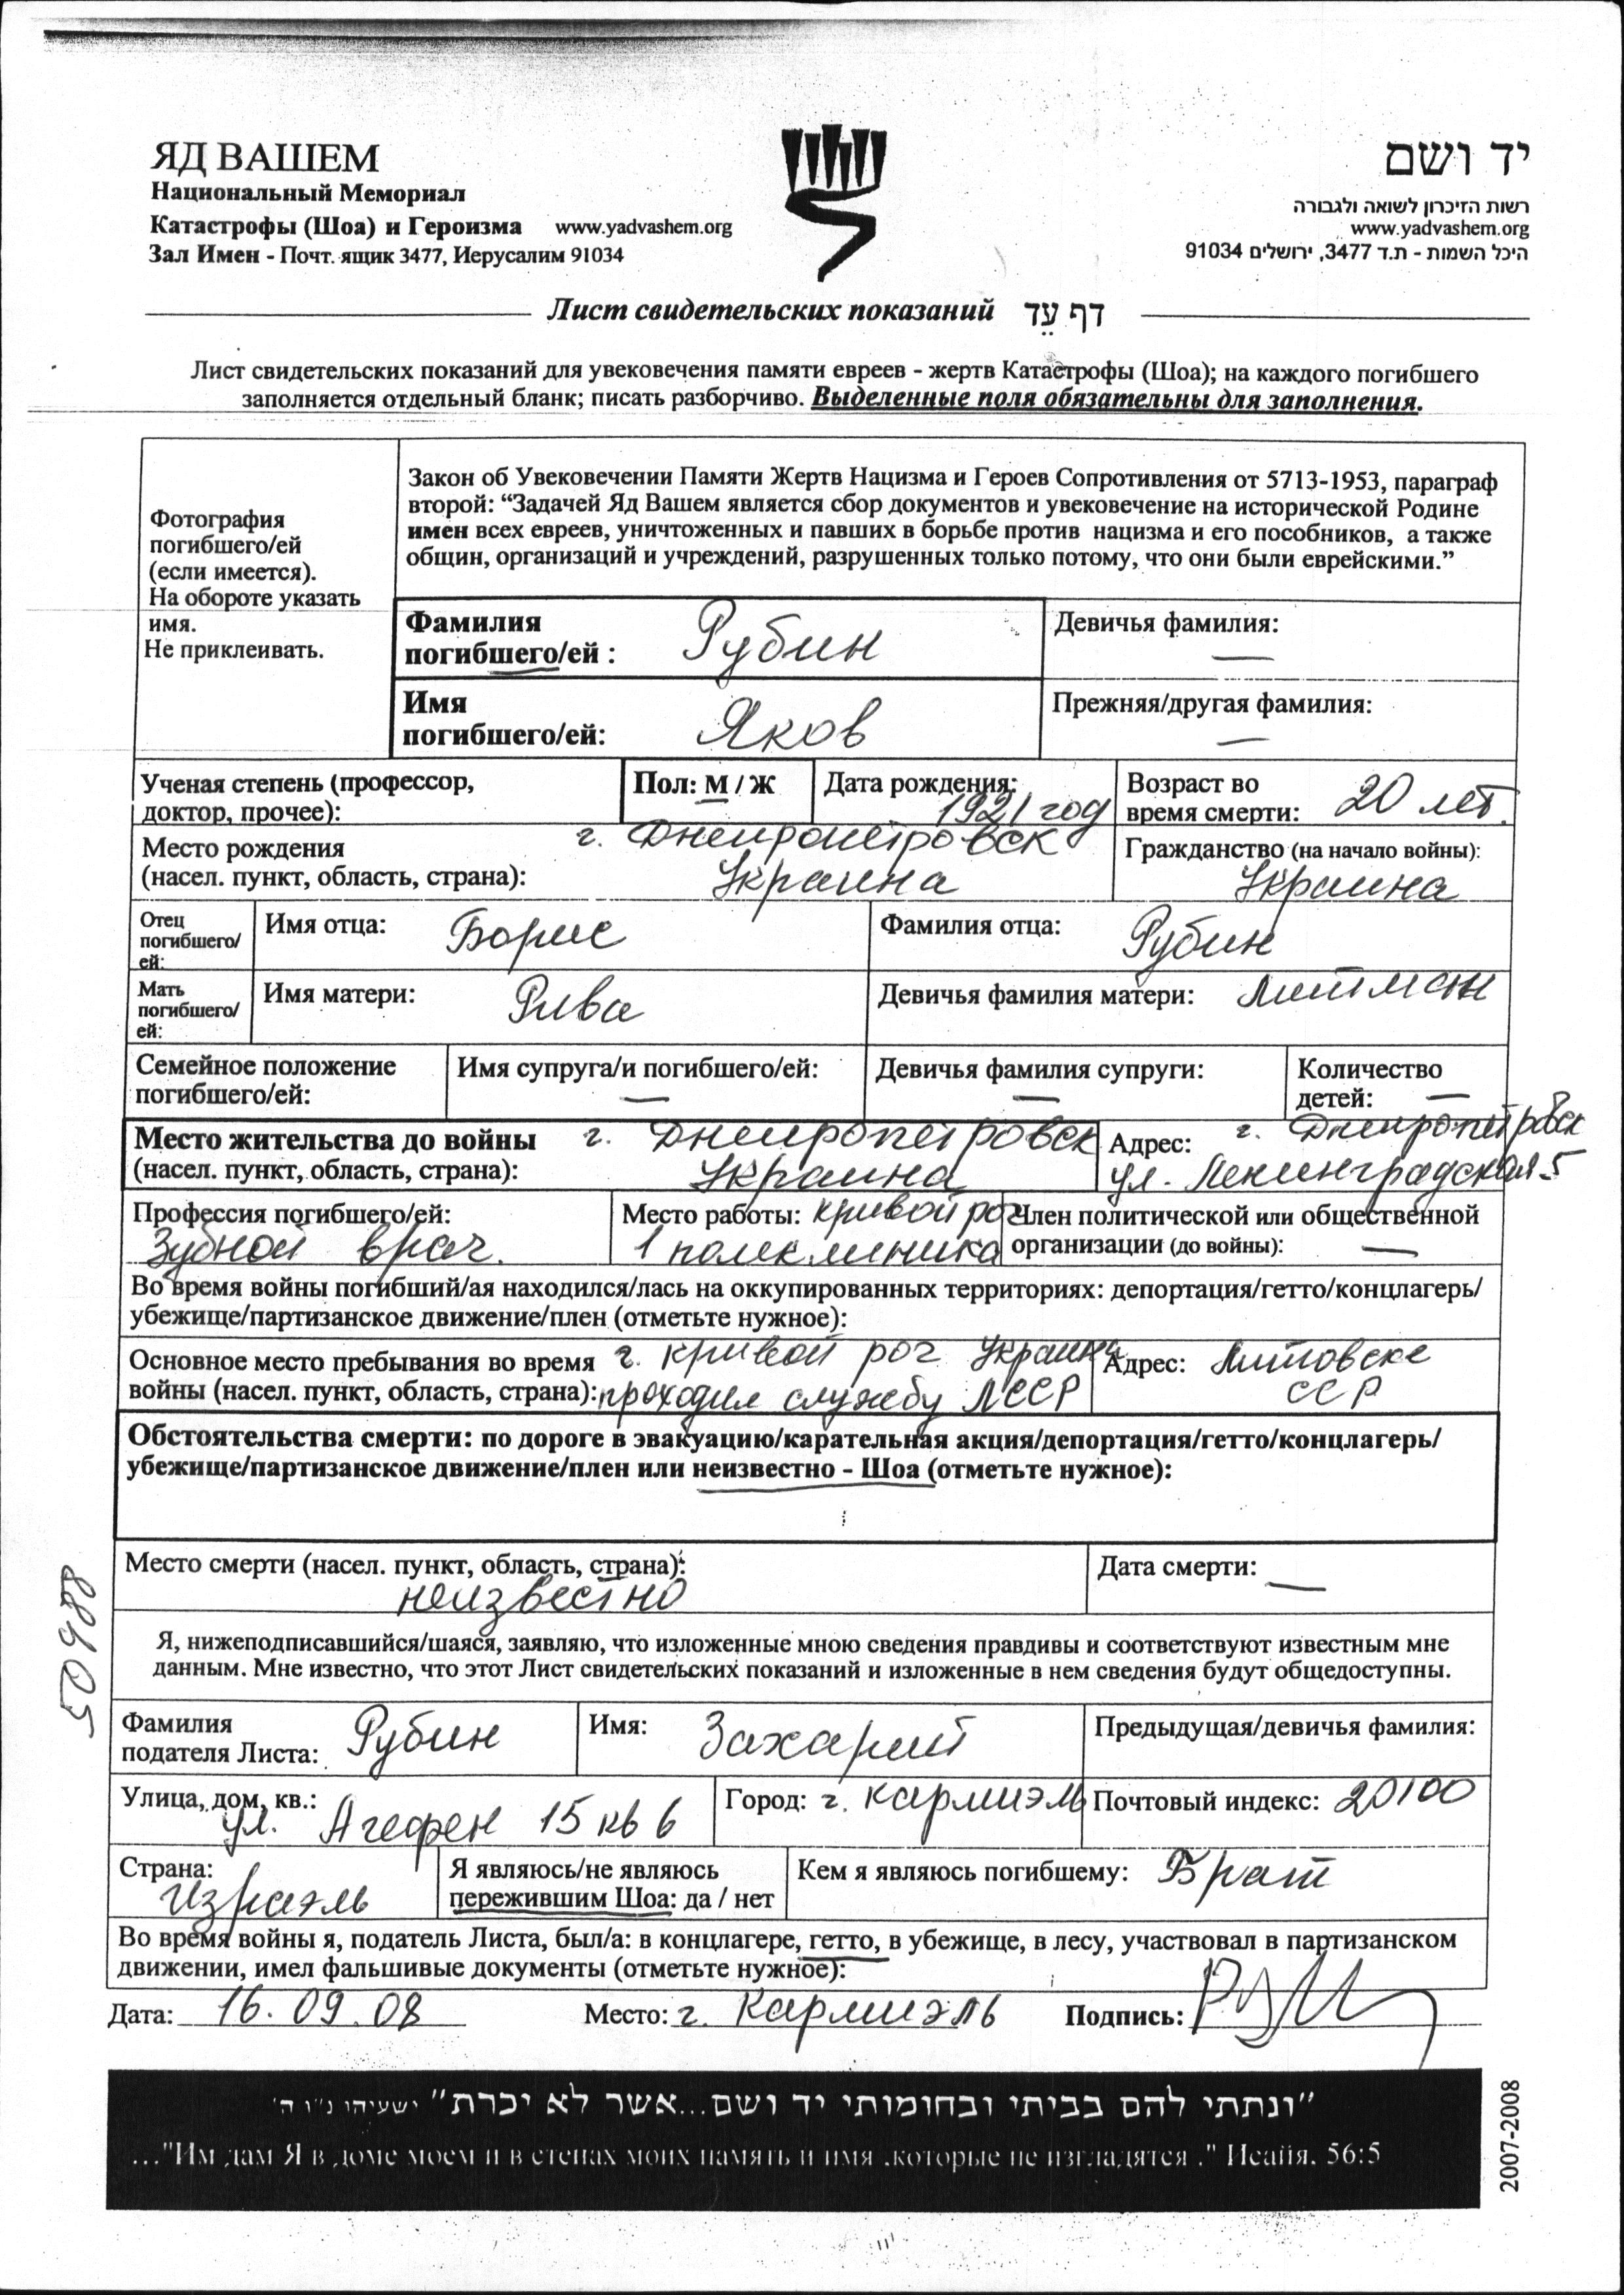 ЯД ВАШЕМ
Национальный Мемориал
Катастрофы (Шоа) и Героизма www.yadvashem.org
Зал Имен - Почт. ящик 3477, Иерусалим 91034
יד ושם
רשות הזיכרון לשואה ולגבורה
www.yadvashem.org
היכל השמות - ת.ד 3477, ירושלים 91034
Лист свидетельских показаний דף עֵד
Лист свидетельских показаний для увековечения памяти евреев - жертв Катастрофы (Шоа); на каждого погибшего
заполняется отдельный бланк; писать разборчиво. Выделенные поля обязательны для заполнения.
Фотография
погибшего/ей
(если имеется).
На обороте указать
имя.
Не приклеивать.
Закон об Увековечении Памяти Жертв Нацизма и Героев Сопротивления от 5713-1953, параграф
второй: “Задачей Яд Вашем является сбор документов и увековечение на исторической Родине
имен всех евреев, уничтоженных и павших в борьбе против нацизма и его пособников, а также
общин, организаций и учреждений, разрушенных только потому, что они были еврейскими.”
Фамилия
погибшего/ей : Рубин
Девичья фамилия:
—
Имя
погибшего/ей: Яков
Прежняя/другая фамилия:
—
Ученая степень (профессор,
доктор, прочее):
Пол: М / Ж
Дата рождения:
1921 год
Возраст во
время смерти: 20 лет.
Место рождения г. Днепропетровск
(насел. пункт, область, страна): Украина
Гражданство (на начало войны):
Украина
Отец
погибшего/
ей:
Имя отца: Борис
Фамилия отца: Рубин
Мать
погибшего/
ей:
Имя матери: Рива
Девичья фамилия матери: Литман
Семейное положение
погибшего/ей:
Имя супруга/и погибшего/ей:
—
Девичья фамилия супруги:
—
Количество
детей: —
Место жительства до войны г. Днепропетровск
(насел. пункт, область, страна): Украина
Адрес: г. Днепропетровск
ул. Ленинградская 5
Профессия погибшего/ей:
Зубной врач.
Место работы: кривой рог
1 полеклиника
Член политической или общественной
организации (до войны): —
Во время войны погибший/ая находился/лась на оккупированных территориях: депортация/гетто/концлагерь/
убежище/партизанское движение/плен (отметьте нужное):
Основное место пребывания во время г. кривой рог Украина
войны (насел. пункт, область, страна): проходил службу ЛССР
Адрес: Литовске
ССР
Обстоятельства смерти: по дороге в эвакуацию/карательная акция/депортация/гетто/концлагерь/
убежище/партизанское движение/плен или неизвестно - Шоа (отметьте нужное):
Место смерти (насел. пункт, область, страна):
неизвестно
Дата смерти: —
Я, нижеподписавшийся/шаяся, заявляю, что изложенные мною сведения правдивы и соответствуют известным мне
данным. Мне известно, что этот Лист свидетельских показаний и изложенные в нем сведения будут общедоступны.
Фамилия
подателя Листа: Рубин
Имя: Захарий
Предыдущая/девичья фамилия:
Улица, дом, кв.:
ул. Агефен 15 кв 6
Город: г. Кармиэль
Почтовый индекс: 20100
Страна:
Израэль
Я являюсь/не являюсь
пережившим Шоа: да / нет
Кем я являюсь погибшему: Брат
Во время войны я, податель Листа, был/а: в концлагере, гетто, в убежище, в лесу, участвовал в партизанском
движении, имел фальшивые документы (отметьте нужное):
Дата: 16.09.08 Место: г. Кармиэль Подпись:
"ונתתי להם בביתי ובחומותי יד ושם...אשר לא יכרת" ישעיהו נ"ו ה'
..."Им дам Я в доме моем и в стенах моих память и имя ,которые не изгладятся ." Исайя. 56:5
2007-2008
50988